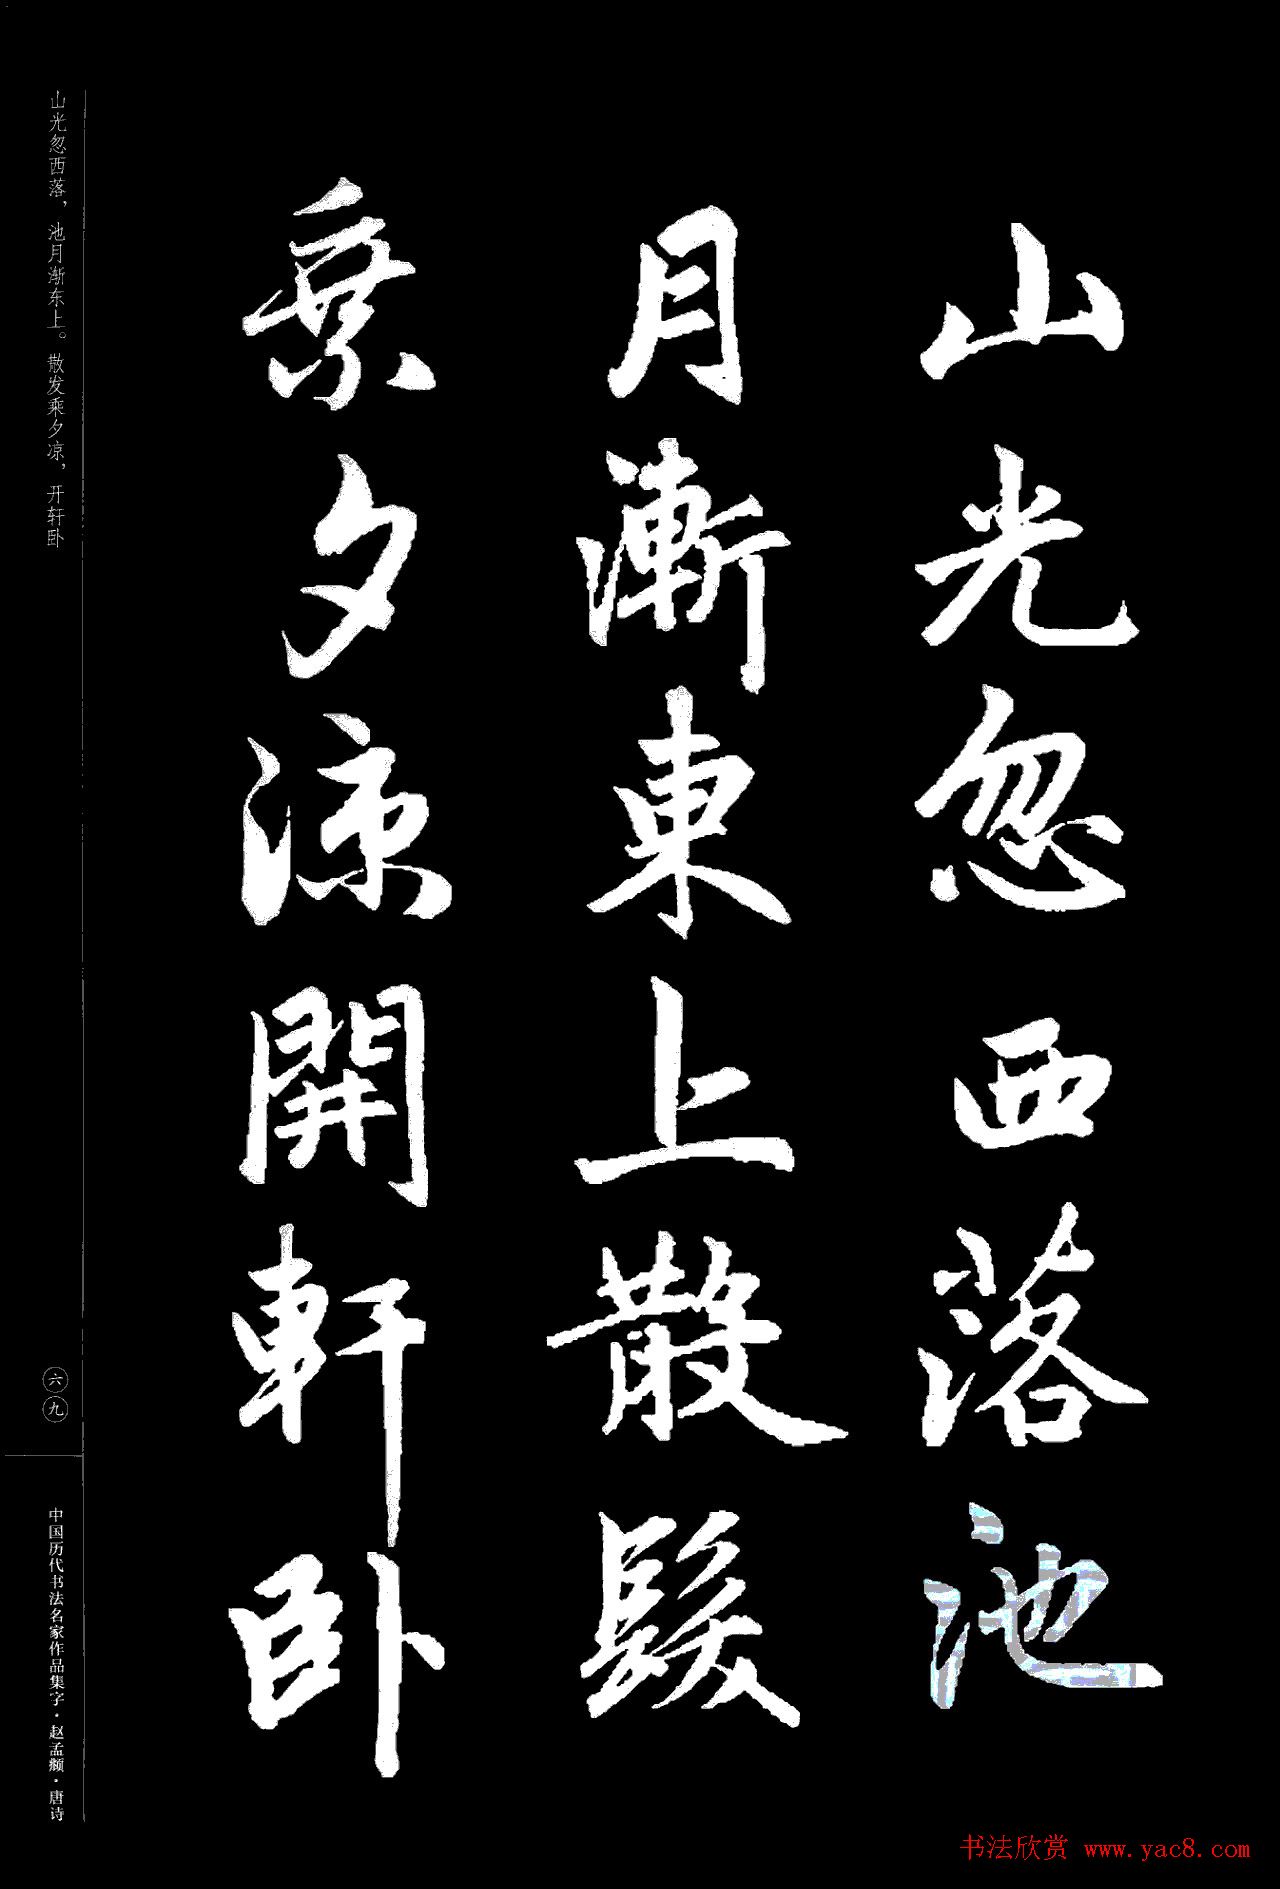 山光忽西落池
月漸東上散髮
乘夕涼開軒卧
山光忽西落，池月渐东上。散发乘夕凉，开轩卧
六九
中国历代书法名家作品集字·赵孟頫·唐诗
书法欣赏 www.yac8.com